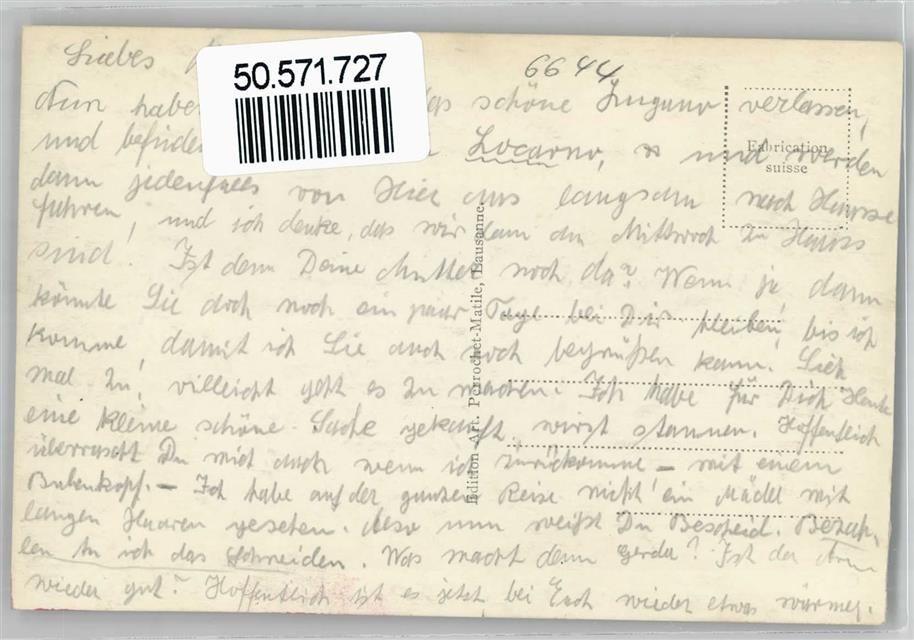 Liebes
50.571.727
6644
Nun haben das schöne Lugano verlassen,
und befinden Locarno, und werden
dann jedenfalls von Hier aus langsam nach Hause
fahren, und ich denke, das wir dann am Mittwoch zu Hauss
sind! Ist denn Deine Mutter noch da? Wenn ja, dann
könnte Sie doch noch ein paar Tage bei Dir bleiben, bis ich
komme, damit ich Sie auch noch begrüßen kann. Sieh
mal zu, villeicht geht es zu machen. Ich habe für Dich Heute
eine kleine schöne Sache gekauft, wirst staunen. Hoffentlich
überrascht Du mich auch wenn ich zurückomme – mit einem
Bubenkopf. – Ich habe auf der ganzen Reise nicht ein Mädel mit
langen Haaren gesehen. Also nun weißt Du Bescheid. Bezah-
len tu ich das schneiden. Was macht denn Gerda? Ist der Arm
wieder gut? Hoffentlich ist es jetzt bei Euch wieder etwas wärmer.
Fabrication
suisse
Edition Art. Perrochet-Matile, Lausanne